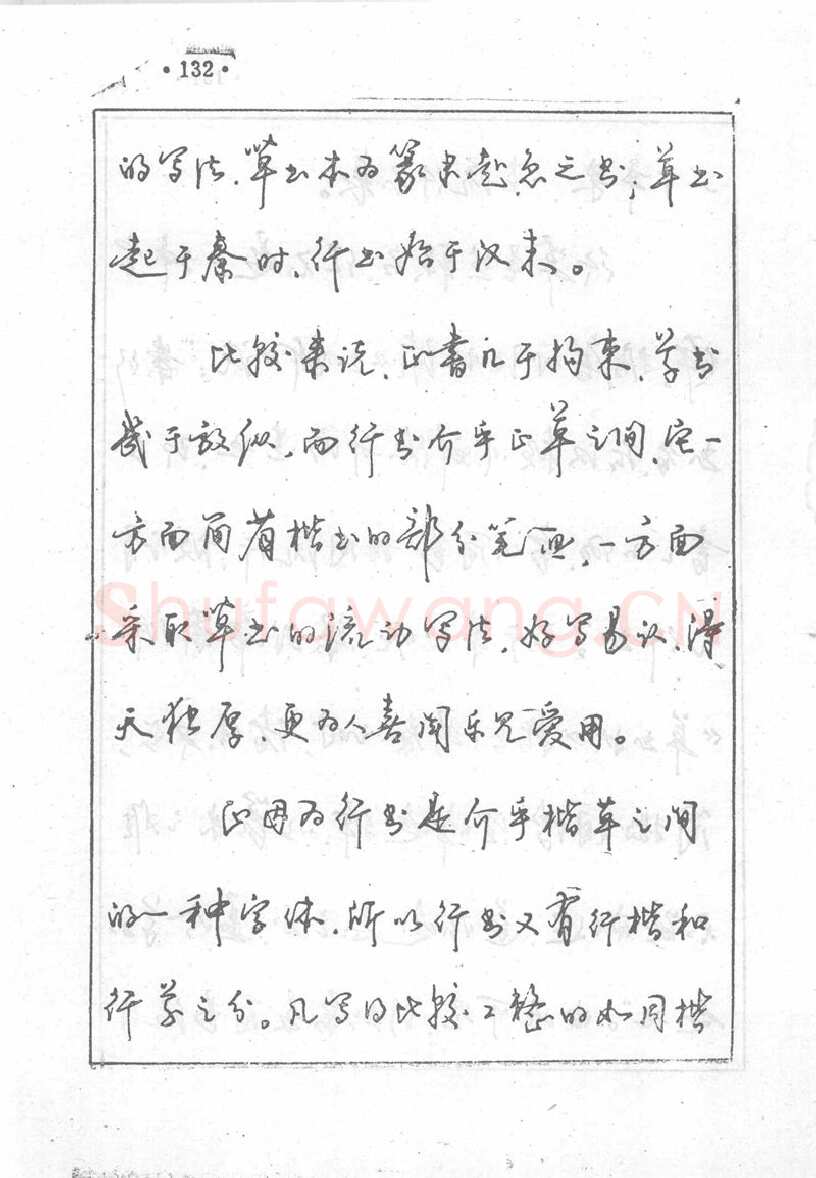 ·132·
的写法,草书本为篆隶赴急之书,草书
起于秦时,行书始于汉末。
比较来说,正书几于拘束,草书
或于放纵,而行书介乎正草之间,它一
方面简省楷书的部分笔画,一方面
采取草书的流动写法,好写易认,得
天独厚,更为人喜闻乐见爱用。
正因为行书是介乎楷草之间
的一种字体,所以行书又有行楷和
行草之分。凡写得比较工整的如同楷
Shufawang.CN